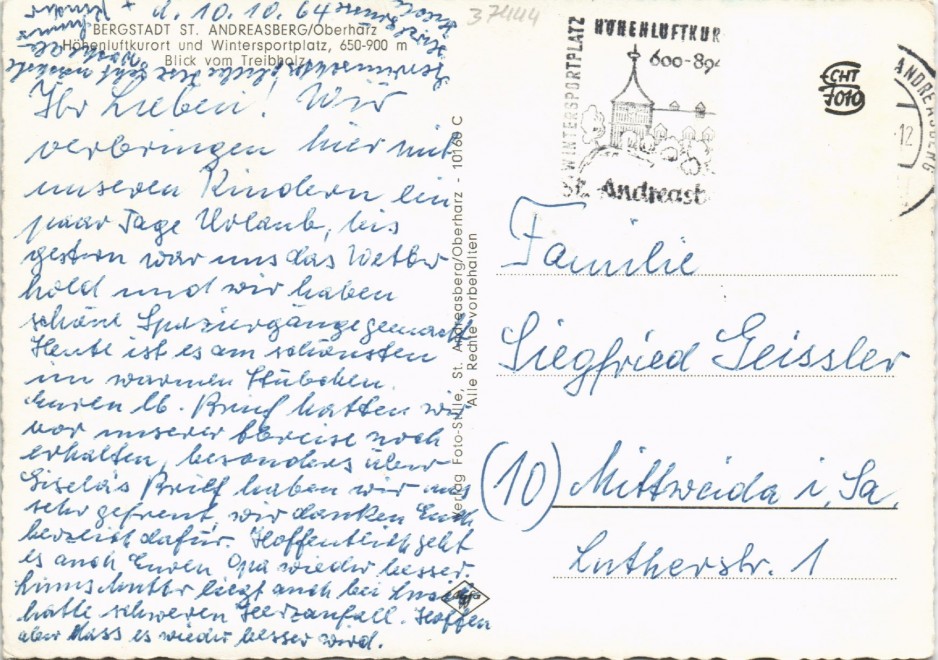 d. 10.10.64
37444
BERGSTADT ST. ANDREASBERG/Oberharz
Höhenluftkurort und Wintersportplatz, 650-900 m
Blick vom Treibholz
Ihr Lieben! Wir
verbringen hier mit
unseren Kindern ein
paar Tage Urlaub, bis
gestern war uns das Wetter
hold und wir haben
schöne Spaziergänge gemacht
Heute ist es am schönsten
im warmen Stübchen.
Euren lb. Brief hatten wir
vor unserer Abreise noch
erhalten, besonders über
Gisela's Brief haben wir uns
sehr gefreut, wir danken Euch
herzlich dafür. Hoffentlich geht
es auch Euren Opa wieder besser.
liegt auch bei
hatte schweren Herzanfall. Hoffen
aber dass es wieder besser wird.
Verlag Foto-Stille, St. Andreasberg/Oberharz - 10160 C
Alle Rechte vorbehalten
WINTERSPORTPLATZ
HÖHENLUFTKUR
600-894
St. Andreasb
ECHT
7019
ANDREASBERG
12
Familie
Siegfried Geissler
(10) Mittweida i. Sa.
Lutherstr. 1